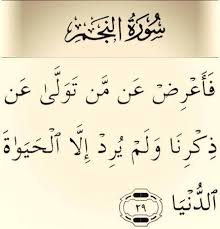 سُورَةُ النَّجْمِ
فَأَعْرِضْ عَن مَّن تَوَلَّىٰ عَن
ذِكْرِنَا وَلَمْ يُرِدْ إِلَّا الْحَيَوٰةَ
الدُّنْيَا ٢٩